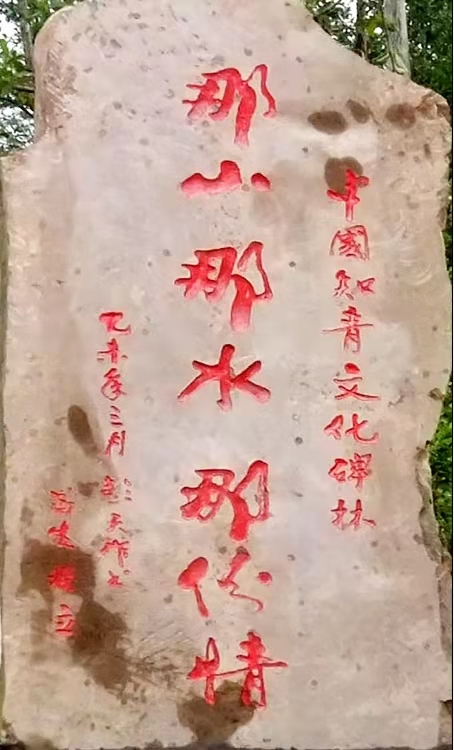 中國知青文化碑林
那山那水那份情
乙未年三月
立